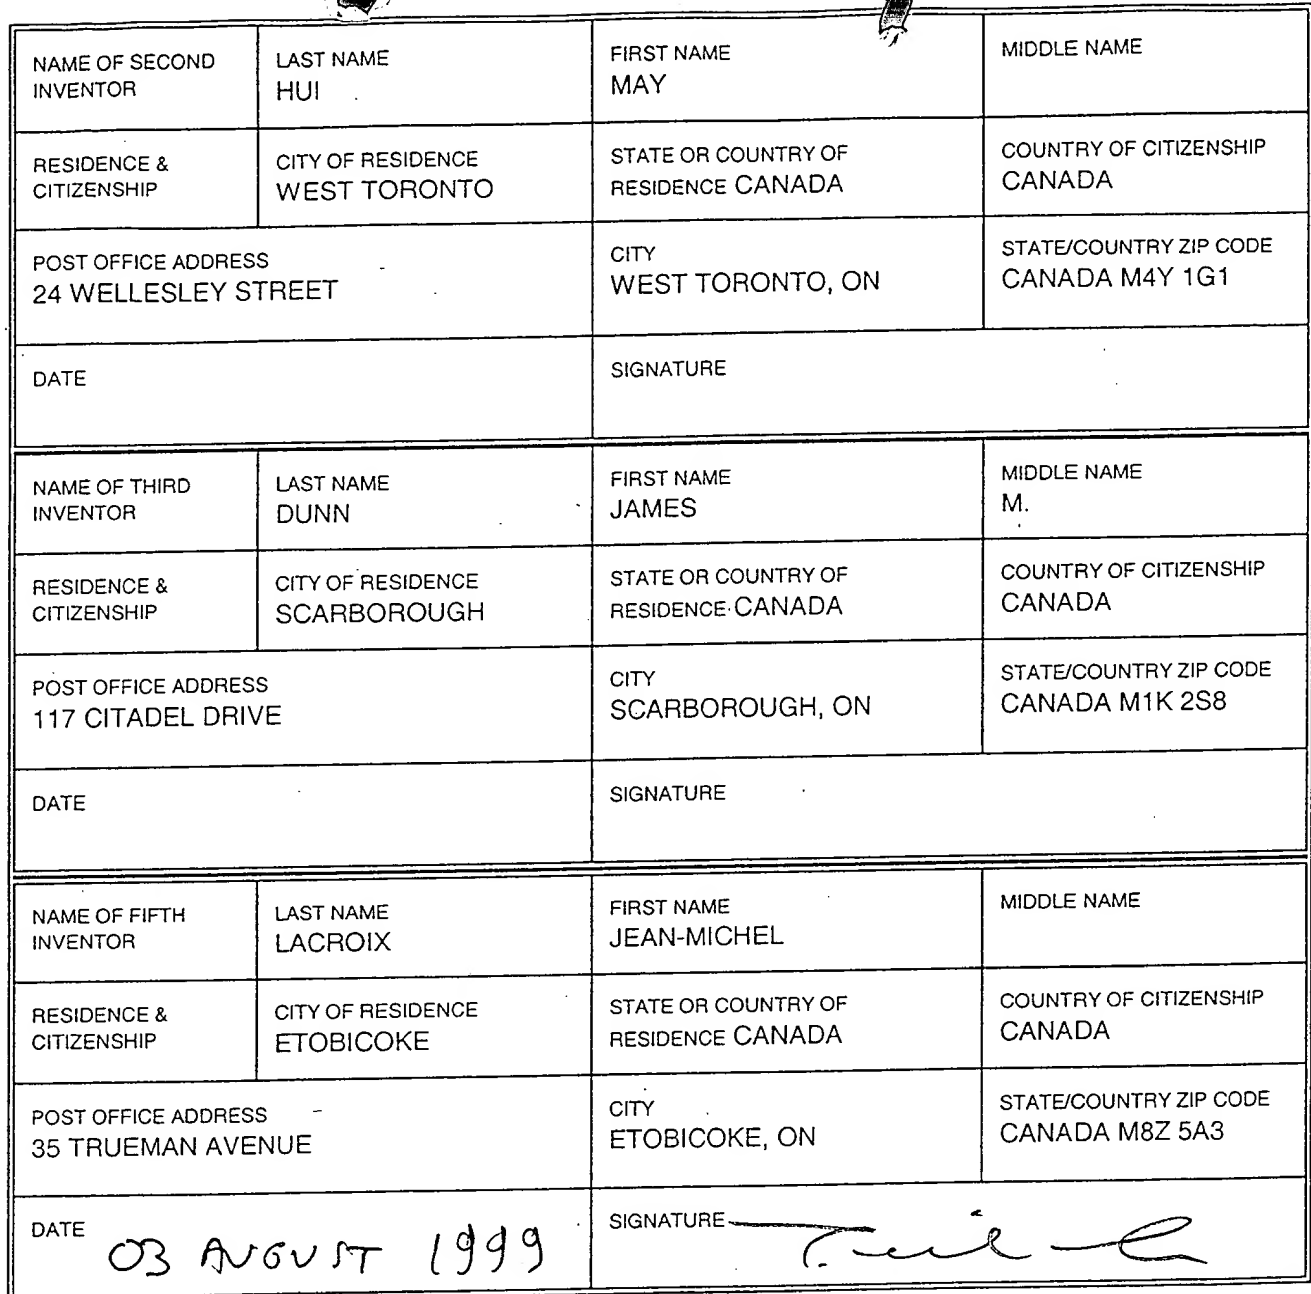 NAME OF SECOND
INVENTOR
LAST NAME
HUI
FIRST NAME
MAY
MIDDLE NAME
RESIDENCE &
CITIZENSHIP
CITY OF RESIDENCE
WEST TORONTO
STATE OR COUNTRY OF
RESIDENCE CANADA
COUNTRY OF CITIZENSHIP
CANADA
POST OFFICE ADDRESS
24 WELLESLEY STREET
CITY
WEST TORONTO, ON
STATE/COUNTRY ZIP CODE
CANADA M4Y 1G1
DATE
SIGNATURE
NAME OF THIRD
INVENTOR
LAST NAME
DUNN
FIRST NAME
JAMES
MIDDLE NAME
M.
RESIDENCE &
CITIZENSHIP
CITY OF RESIDENCE
SCARBOROUGH
STATE OR COUNTRY OF
RESIDENCE CANADA
COUNTRY OF CITIZENSHIP
CANADA
POST OFFICE ADDRESS
117 CITADEL DRIVE
CITY
SCARBOROUGH, ON
STATE/COUNTRY ZIP CODE
CANADA M1K 2S8
DATE
SIGNATURE
NAME OF FIFTH
INVENTOR
LAST NAME
LACROIX
FIRST NAME
JEAN-MICHEL
MIDDLE NAME
RESIDENCE &
CITIZENSHIP
CITY OF RESIDENCE
ETOBICOKE
STATE OR COUNTRY OF
RESIDENCE CANADA
COUNTRY OF CITIZENSHIP
CANADA
POST OFFICE ADDRESS
35 TRUEMAN AVENUE
CITY
ETOBICOKE, ON
STATE/COUNTRY ZIP CODE
CANADA M8Z 5A3
DATE 03 AUGUST 1999
SIGNATURE